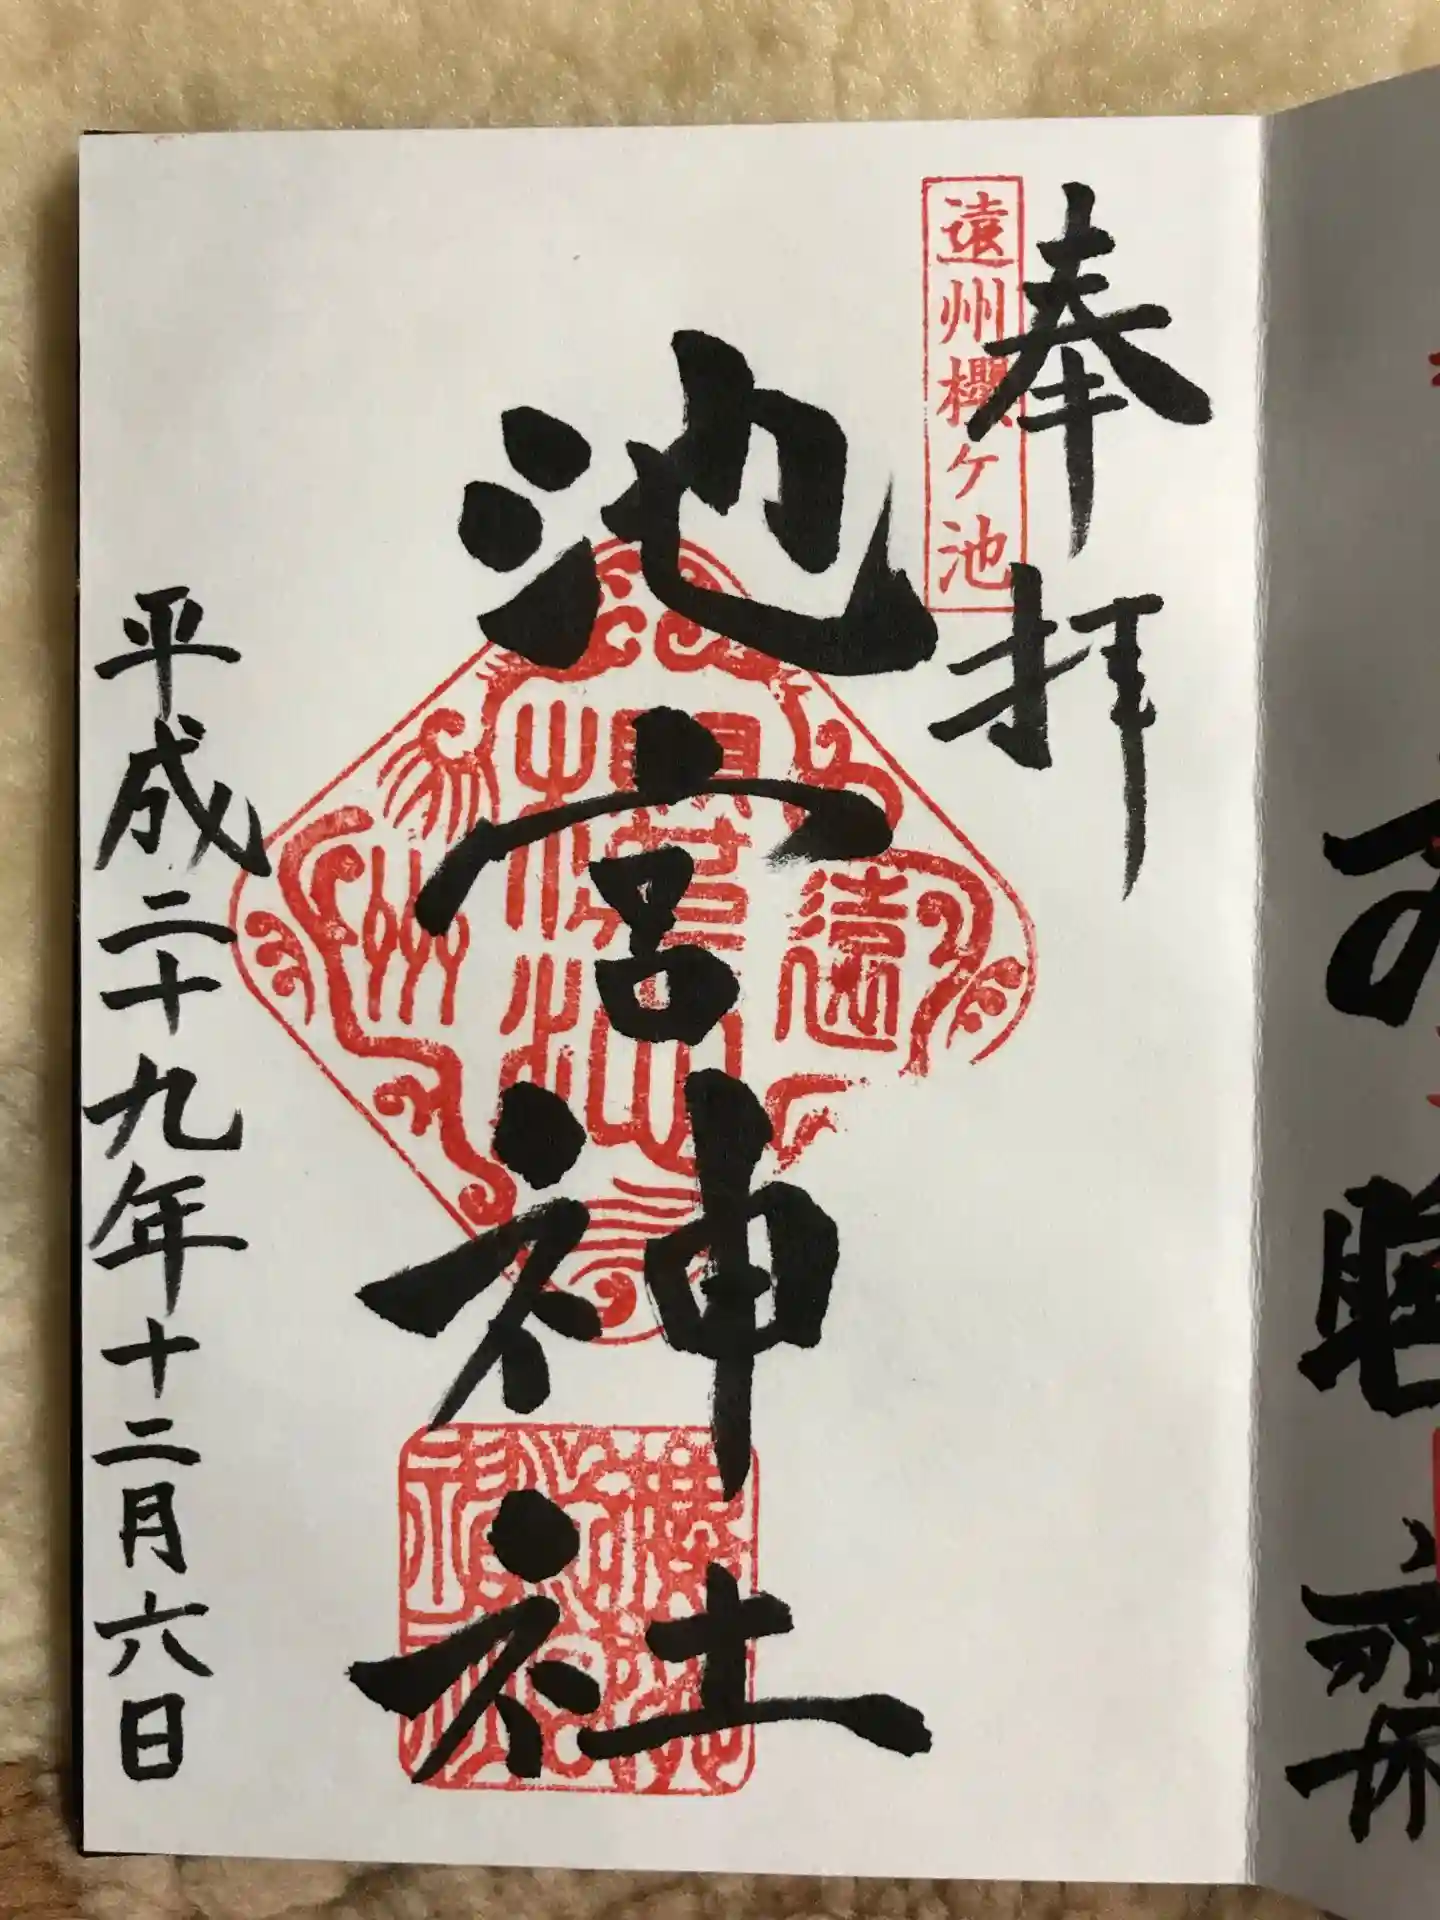 奉拝
遠州櫻ヶ池
池宮神社
遠州
櫻池
平成二十九年十二月六日